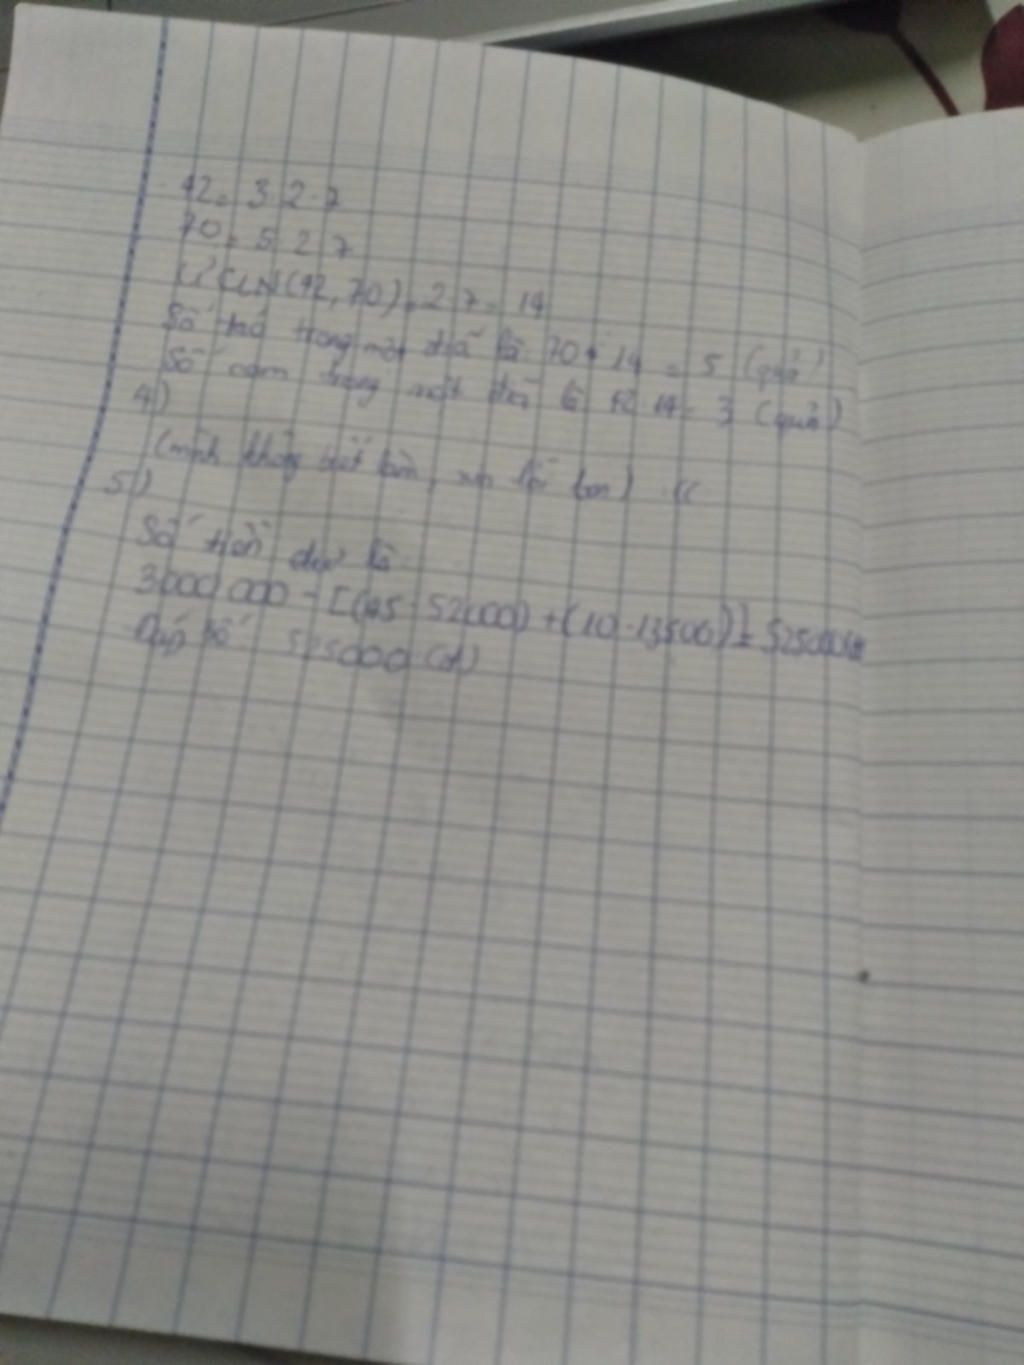 42 = 3.2.7
70 = 5.2.7
ƯCLN(42,70) = 2.7 = 14
Số táo trong một đĩa là: 70:14 = 5 (quả)
Số cam trong một đĩa là 42:14 = 3 (quả)
4)
(mình không biết làm, xin lỗi bạn) :((
5)
Số tiền dư là:
3000 000 - [(45.52000) + (10.13500)] = 525000
Đáp số: 525000 (đ)